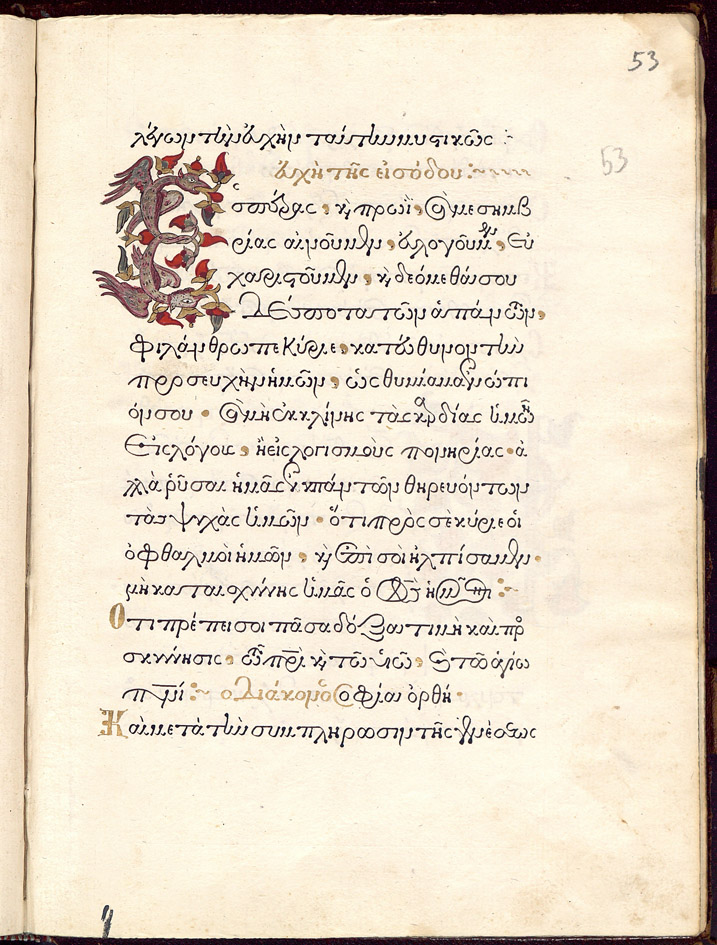 53
λέγων τὴν εὐχὴν ταύτην μυστικῶς :
εὐχὴ τῆς εἰσόδου :~
53
Ἑσπέρας, κ(αὶ) πρωῒ, καὶ μεσημβ
ρίας αἰνοῦμέν, εὐλογοῦμέν, εὐ
χαριστοῦμέν, κ(αὶ) δεόμεθά σου
Δέσποτα τῶν ἁπάντων,
φιλάνθρωπε Κύριε, κατεύθυνον τὴν
προσευχὴν ἡμῶν, ὡς θυμίαμα ἐνώπι
όν σου · καὶ μὴ ἐκκλίνῃς τὰς καρδίας ἡμῶν
Εἰς λόγους, ἢ εἰς λογισμοὺς πονηρίας · ἀ
λλὰ ῥῦσαι ἡμᾶς ἐκ πάντων θηρευόντων
τὰς ψυχὰς ἡμῶν · ὅτι πρὸς σὲ κύριε οἱ
ὀφθαλμοὶ ἡμῶν, κ(αὶ) ἐπὶ σοὶ ἠλπίσαμεν ·
μὴ καταισχύνῃς ἡμᾶς ὁ Θς ἡμῶν :~
Ὅτι πρέπει σοι πᾶσα δόξα τιμὴ καὶ προ
σκύνησις, τῷ πρὶ κ(αὶ) τῷ υἱῷ, καὶ τῷ ἁγίω
πνι :~ ὁ Διάκονος Σοφία ὀρθή ·
Καὶ μετὰ τὴν συμπλήρωσιν τῆς